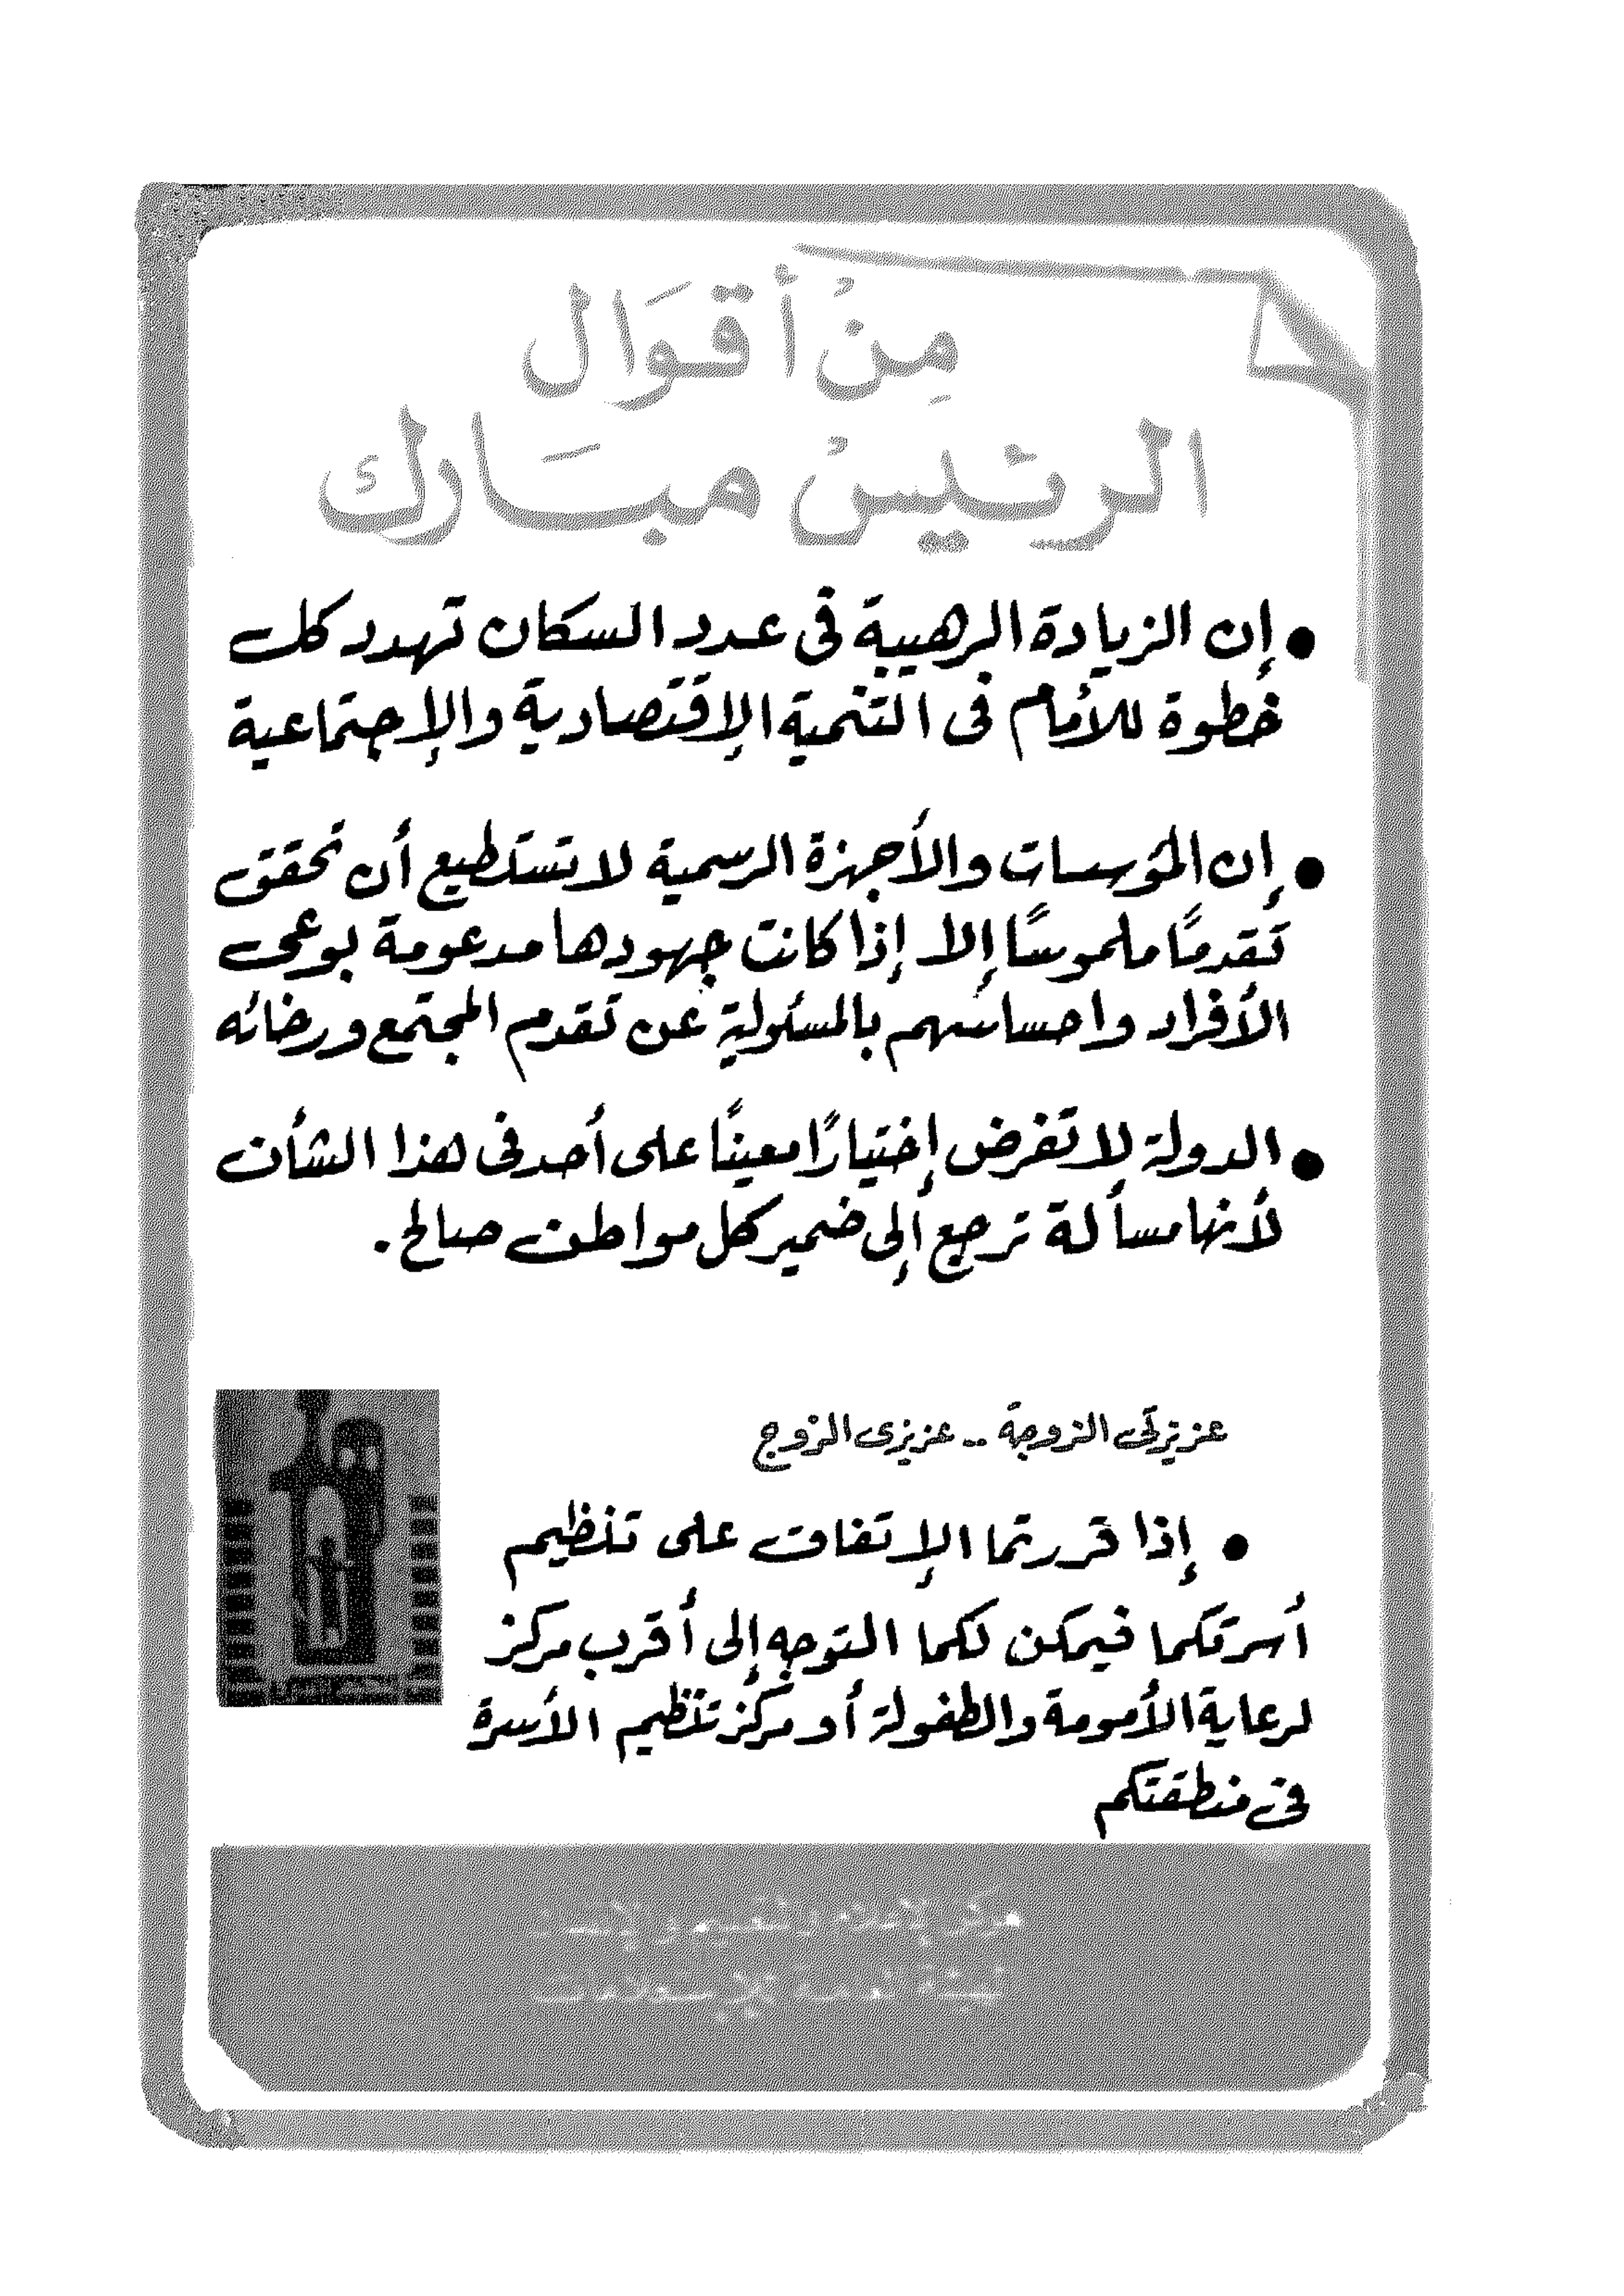 مِنْ أقوَال
الرئيسْ مبَارك
• إن الزيادة الرهيبة فى عدد السكان تهدد كل
خطوة للأمام فى التنمية الإقتصادية والإجتماعية
• إن المؤسسات والأجهزة الرسمية لا تستطيع أن تحقق
تقدمًا ملموسًا إلا إذا كانت جهودها مدعومة بوعى
الأفراد واحساسهم بالمسئولية عن تقدم المجتمع ورخائه
• الدولة لا تفرض إختيارًا معينًا على أحد فى هذا الشأن
لأنها مسألة ترجع إلى ضمير كل مواطن صالح.
عزيزتى الزوجة .. عزيزى الزوج
• إذا قررتما الإتفاق على تنظيم
أسرتكما فيمكن لكما التوجه إلى أقرب مركز
لرعاية الأمومة والطفولة أو مركز تنظيم الأسرة
فى منطقتكم
مركز الإعلام والتعليم والإتصال